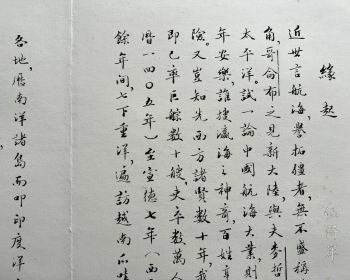 緣起
近世言航海，譽拓疆者，無不盛稱
角，哥侖布之見新大陸，與夫麥哲
太平洋。試一論中國航海大業，則
年安樂，誰搜瀛海之神奇，百姓
險。又豈知先西方諸賢數十年，我
即已率巨艅數十艘，吏卒數萬人
曆一四〇五年）至宣德七年（西
餘年間，七下重洋，遍訪越南、爪哇
各地，歷南洋諸島而叩印度洋